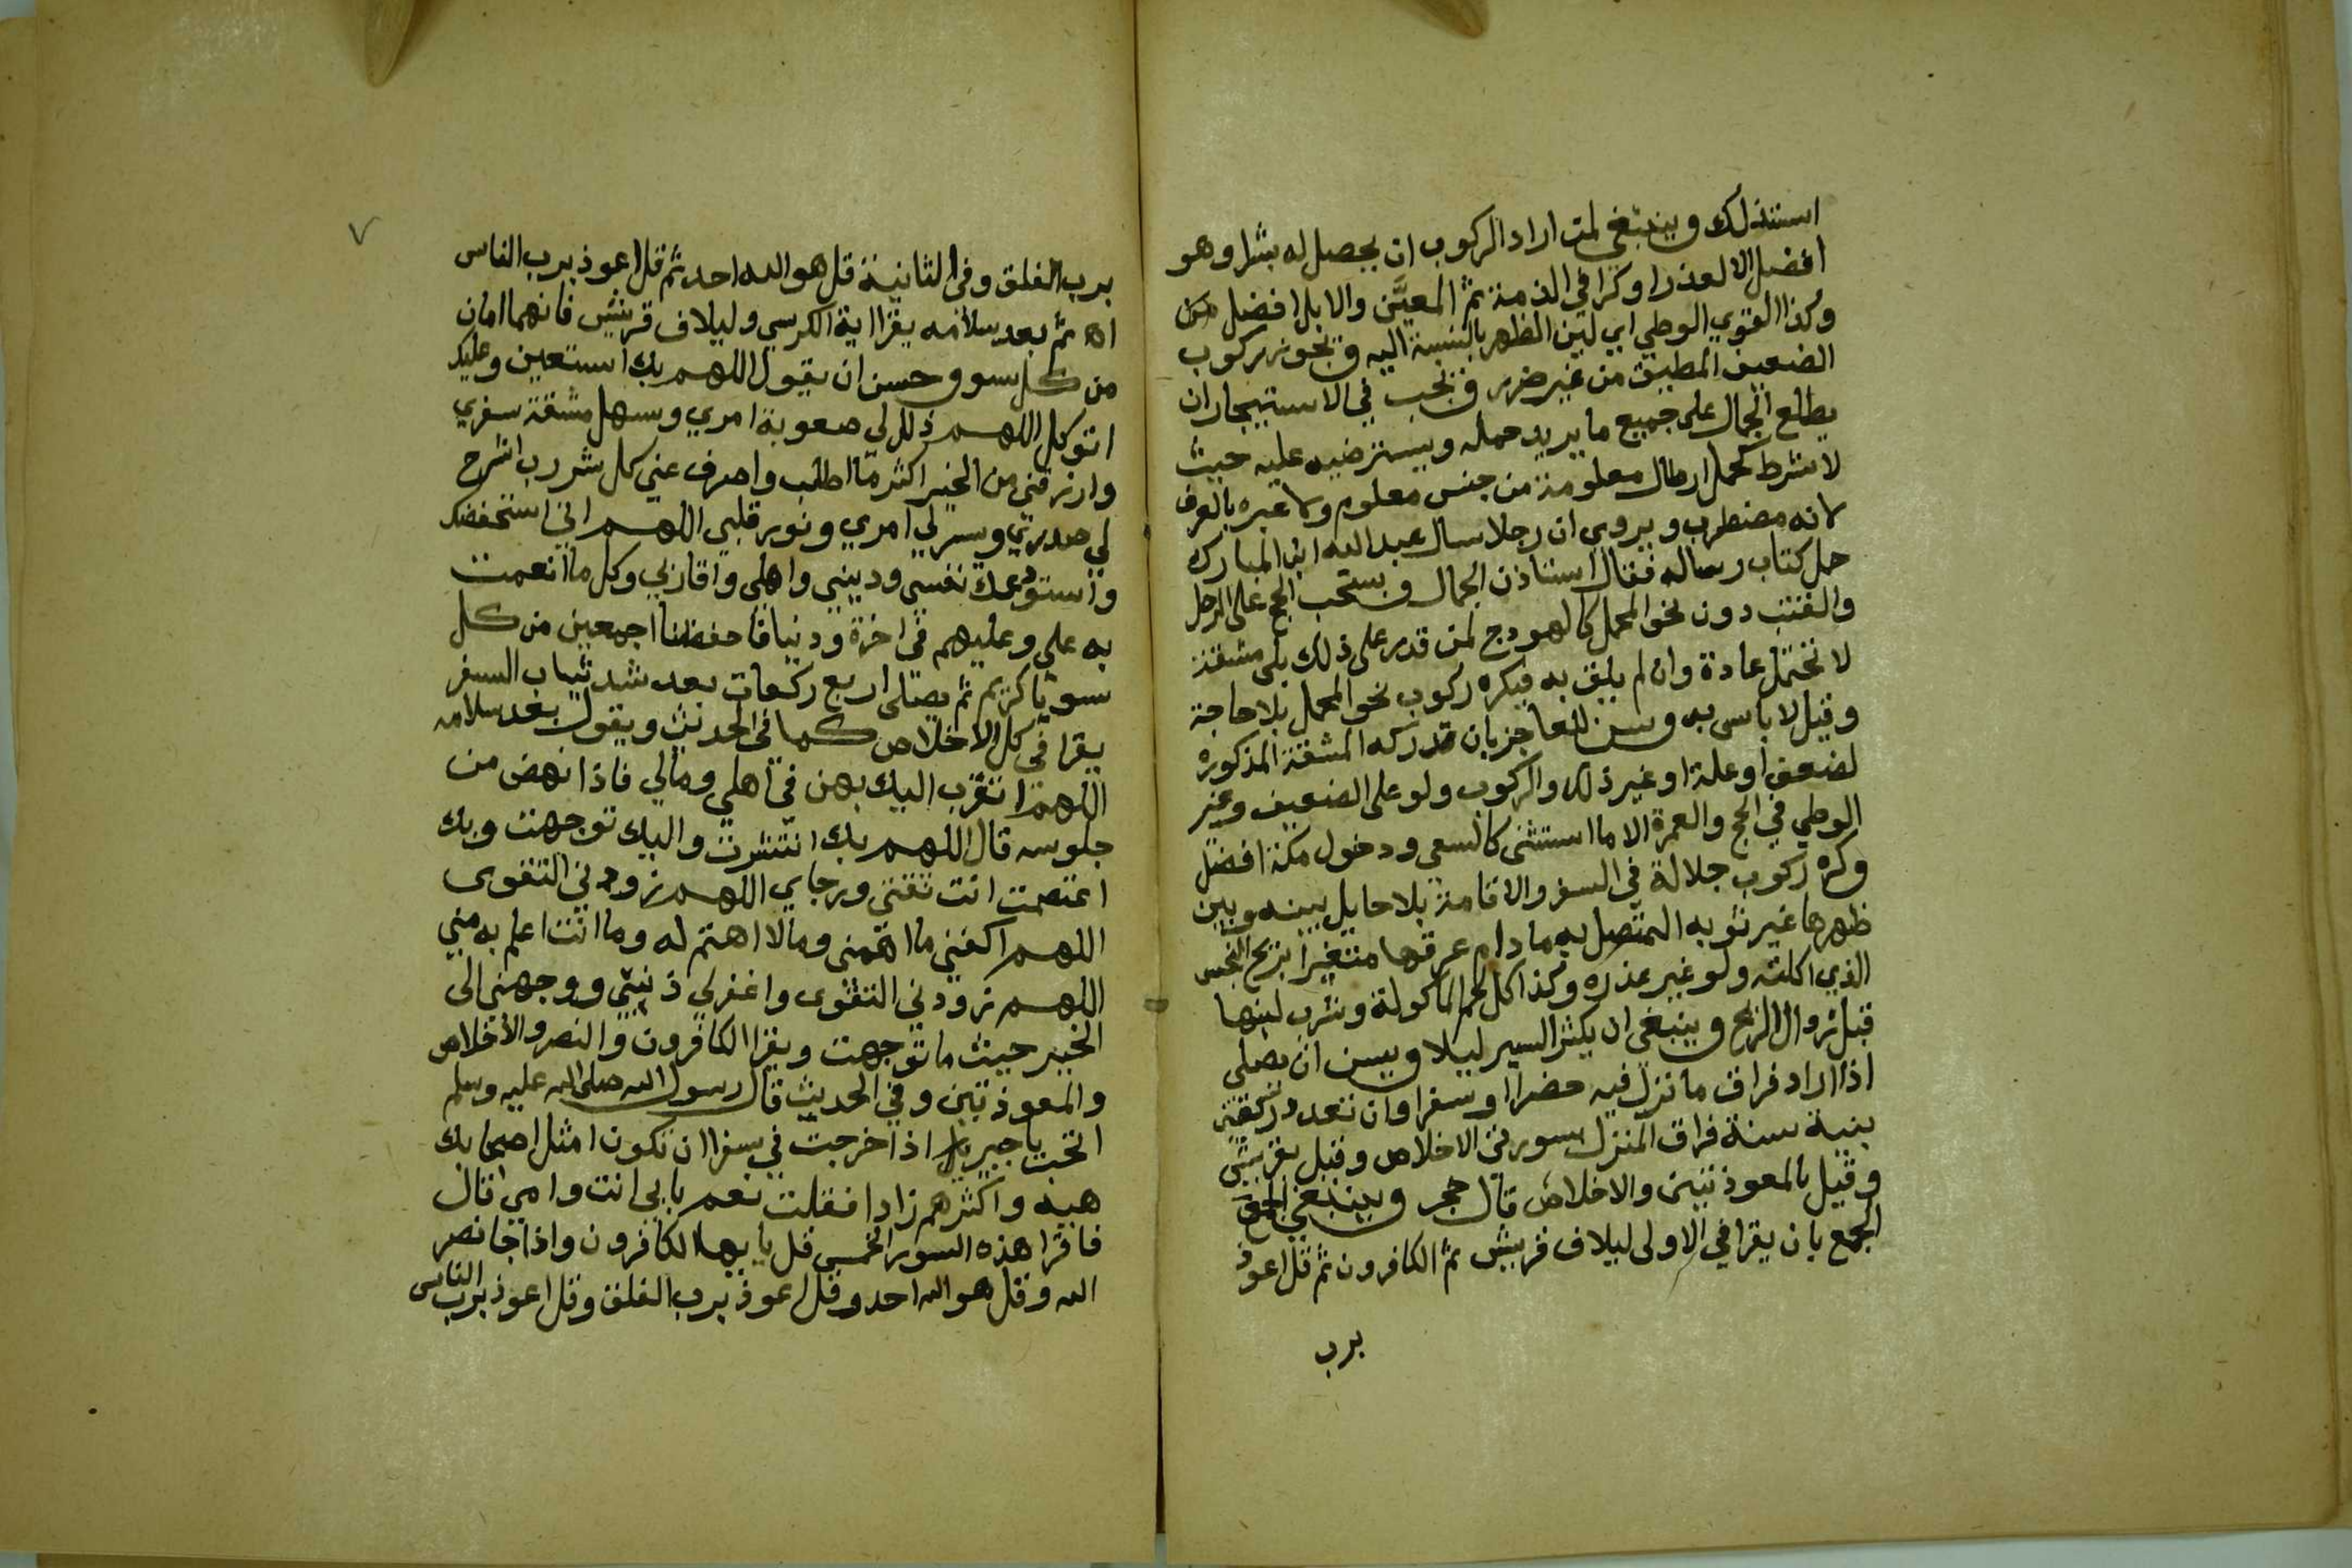 استذلك وينبغي لمن اراد الركوب ان يحصل له بشرا وهو
افضل الا لعذر او كرا في الذمة ثم المعيَّن والابل افضل من
وكذا القوي الوطي اي لين الظهر بالنسبة اليه ويجوز ركوب
الضعيف المطيق من غير ضرر ويجب في الاستيجار ان
يطلع الجمال على جميع ما يريد حمله ويسترضيه عليه حيث
لا شرط كحمل ارطال معلومة من جنس معلوم ولا عبره بالعرف
لانه مضطرب ويروى ان رجلا سال عبد الله ابن المبارك
حمل كتاب رساله فقال استاذن الجمال ويستحب الحج على الرحل
والقتب دون نحو المحمل كالهودج لمن قدر على ذلك بلى مشقة
لا تحتمل عادة وان لم يلق به فيكره ركوب نحو المحمل بلا حاجة
وقيل لا باس به وسن للعاجز بان تدركه المشقة المذكوره
لضعف او علة او غير ذلك والركوب ولو على الضعيف وغير
الوطي في الحج والعمرة الا ما استثنى كالسعي ودخول مكة افضل
وكره ركوب جلالة في السفر والاقامة بلا حايل بينه وبين
ظهرها غير ثوبه المتصل به ما دام عرقها متغيرا بريح النجس
الذي اكلته ولو غير عذره وكذا اكل لحم الماكولة وشرب لبنها
قبل زوال الريح وينبغي ان يكثر السير ليلا ويسن ان يصلي
اذا اراد فراق ما نزل فيه حضرا او سفرا وان تعدد ركعتين
بنية سنة فراق المنزل بسورتى الاخلاص وقيل بقريش
وقيل بالمعوذتين والاخلاص قال حجر وينبغي
الجمع بان يقرا في الاولى ليلاف قريش ثم الكافرون ثم قل اعوذ
برب
٧
برب الفلق وفى الثانية قل هو الله احد ثم قل اعوذ برب الناس
اه ثم بعد سلامه يقرا اية الكرسي وليلاف قريش فانهما امان
من كل سوو حسن ان يقول اللهم بك استعين وعليك
اتوكل اللهم ذلل لي صعوبة امري وسهل مشقة سفري
وارزقني من الخير اكثر مما اطلب واصرف عني كل شر رب اشرح
لي صدري ويسر لي امري ونور قلبي اللهم اني استحفضك
واستودعك نفسي وديني واهلي واقاربي وكل ما انعمت
به علي وعليهم في اخرة ودنيا فاحفظنا اجمعين من كل
سو يا كريم ثم يصلى اربع ركعات بعد شد ثياب السفر
يقرا في كل الاخلاص كما في الحديث ويقول بعد سلامه
اللهم اتقرب اليك بهن في اهلي ومالي فاذا نهض من
جلوسه قال اللهم بك انتشرت واليك توجهت وبك
اعتصمت انت ثقتي ورجاي اللهم زودني التقوى
اللهم اكفني ما اهمني ومالا اهتم له وما انت اعلم به مني
اللهم زودني التقوى واغفر لي ذنبي ووجهني الى
الخير حيث ما توجهت ويقرا الكافرون والنصر والاخلاص
والمعوذتين وفي الحديث قال رسول الله صلى الله عليه وسلم
اتحب يا جبير اذا خرجت في سفر ان تكون امثل اصحابك
هيه واكثرهم زادا فقلت نعم بابي انت وامي قال
فاقرا هذه السور الخمس قل يا يها الكافرون واذا جا نصر
الله وقل هو الله احد وقل اعوذ برب الفلق وقل اعوذ برب الناس